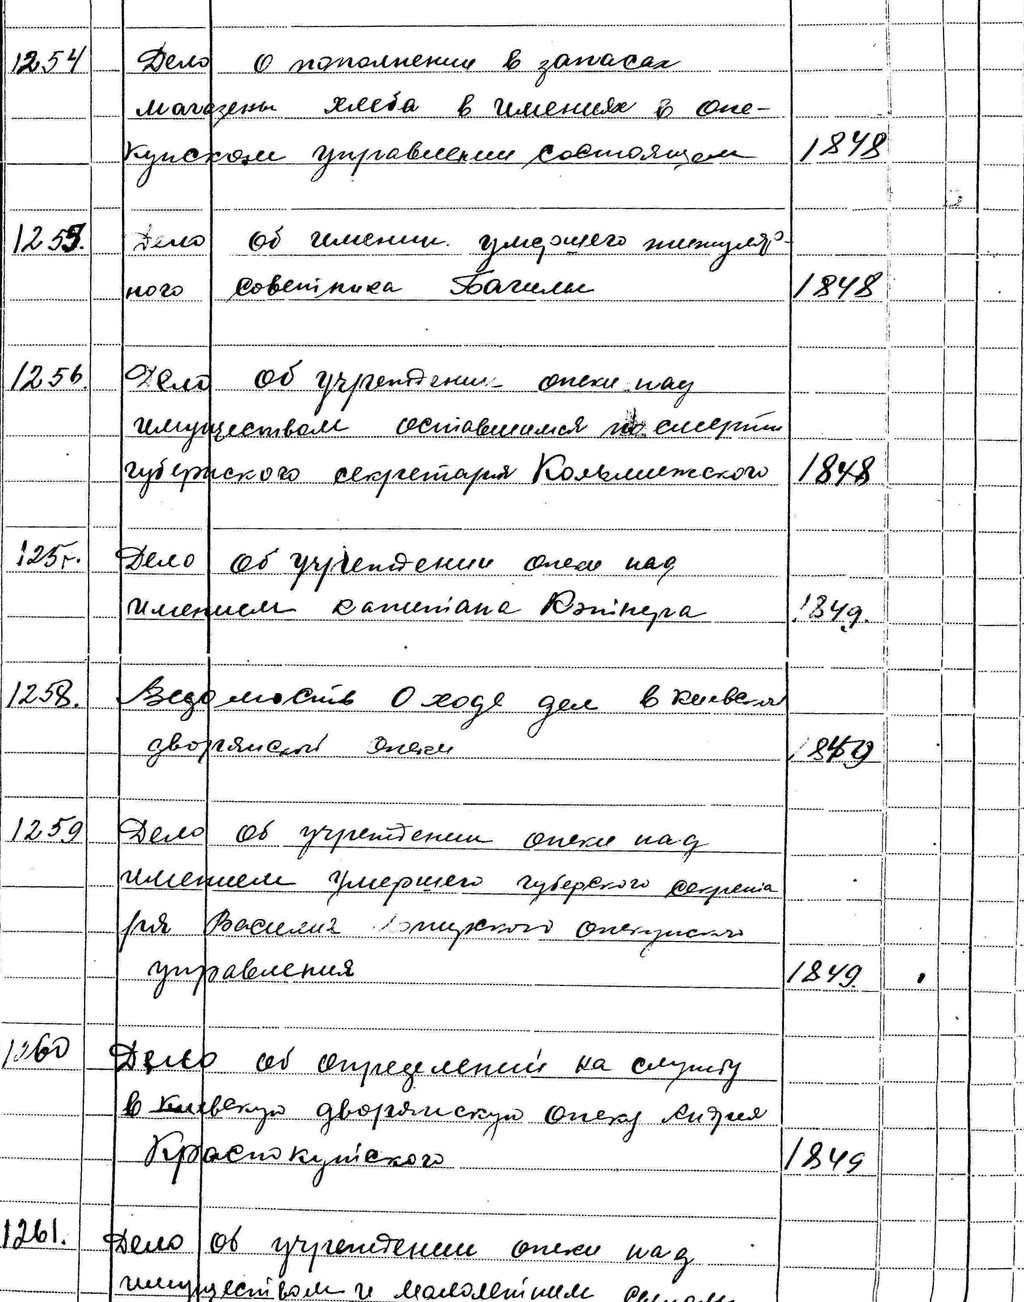 1254 Дело о пополнении в запасах
магазены хлеба в имениях в опе-
кунском управлении состоящем 1848
1255. Дело об имении умершего титуляр-
ного советника Багилы 1848
1256. Дело об учреждении опеки над
имуществом оставшимся по смерти
губернского секретаря 1848
125 . Дело об учреждении опеки над
имением капитана 1849.
1258. Ведомость о ходе дел в Киевской
дворянской опеки 1849
1259 Дело об учреждении опеки над
имением умершего губерского секрета
ря Василия опекунского
управления 1849.
1260 Дело об определений на службу
в Киевскую дворянскую опеку Андрея
Краснокутского 1849
1261. Дело об учреждении опеки над
имуществом и малолетним